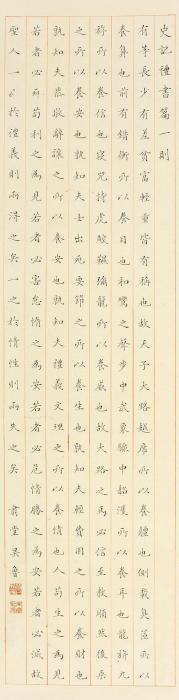 史記禮書篇一則
有等長少有差貧富輕重皆有稱也故天子大路越席所以養體也側載臭茝所以
養鼻也前有錯衡所以養目也和鸞之聲步中武象驟中韶濩所以養耳也龍旂九
斿所以養信也寢兕持虎鮫韅彌龍所以養威也故大路之馬必信至教順然後乘
之所以養安也孰知夫士出死要節之所以養生也孰知夫輕費用之所以養財也
孰知夫恭敬辭讓之所以養安也孰知夫禮義文理之所以養情也人苟生之為見
若者必死苟利之為見若者必害怠惰之為安若者必危情勝之為安若者必滅故
聖人一之於禮義則兩得之矣一之於情性則兩失之矣 肅堂吳魯